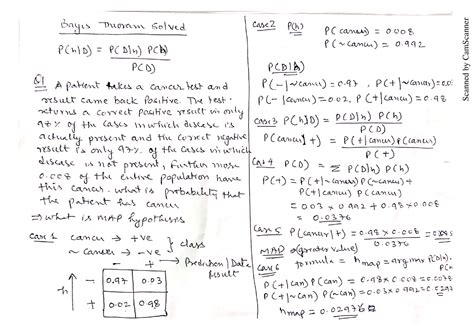 Bayes Theorem Solved
P(h|D) = P(D|h) P(h)
P(D)
Q1 A patient takes a cancer test and
result came back positive. The test
returns a correct positive result in only
98% of the cases in which disease is
actually present and the correct negative
result is only 97% of the cases in which
disease is not present, Further more
0.008 of the entire population have
this cancer. What is probability that
the patient has cancer
⇒ what is MAP hypothesis
Case 1 cancer → +ve
~ cancer → -ve } class
- + → Prediction | Data
Result
h - 0.97 0.03
+ 0.02 0.98
Case 2 P(h)
P(cancer) = 0.008
P(~cancer) = 0.992
P(D|h)
P(-|~cancer) = 0.97, P(+|~cancer)
P(-|cancer) = 0.02, P(+|cancer) = 0.98
Case 3 P(h|D) = P(D|h) P(h)
P(D)
P(cancer|+) = P(+|cancer) P(cancer)
P(+)
Case 4 P(D) = Σ P(D|h) P(h)
P(+) = P(+|~cancer) P(~cancer) +
P(+|cancer) P(cancer)
= 0.03 × 0.992 + 0.98 × 0.008
= 0.0376
Case 5 P(cancer|+) = 0.98 × 0.008
0.0376
MAP → (greater value)
formula = hmap = argmax P(D|h).
Case 6
P(+|can) P(can) = 0.98 × 0.008 = 0.0078
P(+|~can) P(~can) = 0.03 × 0.992 =
hmap = 0.02976
Scanned by CamScanner